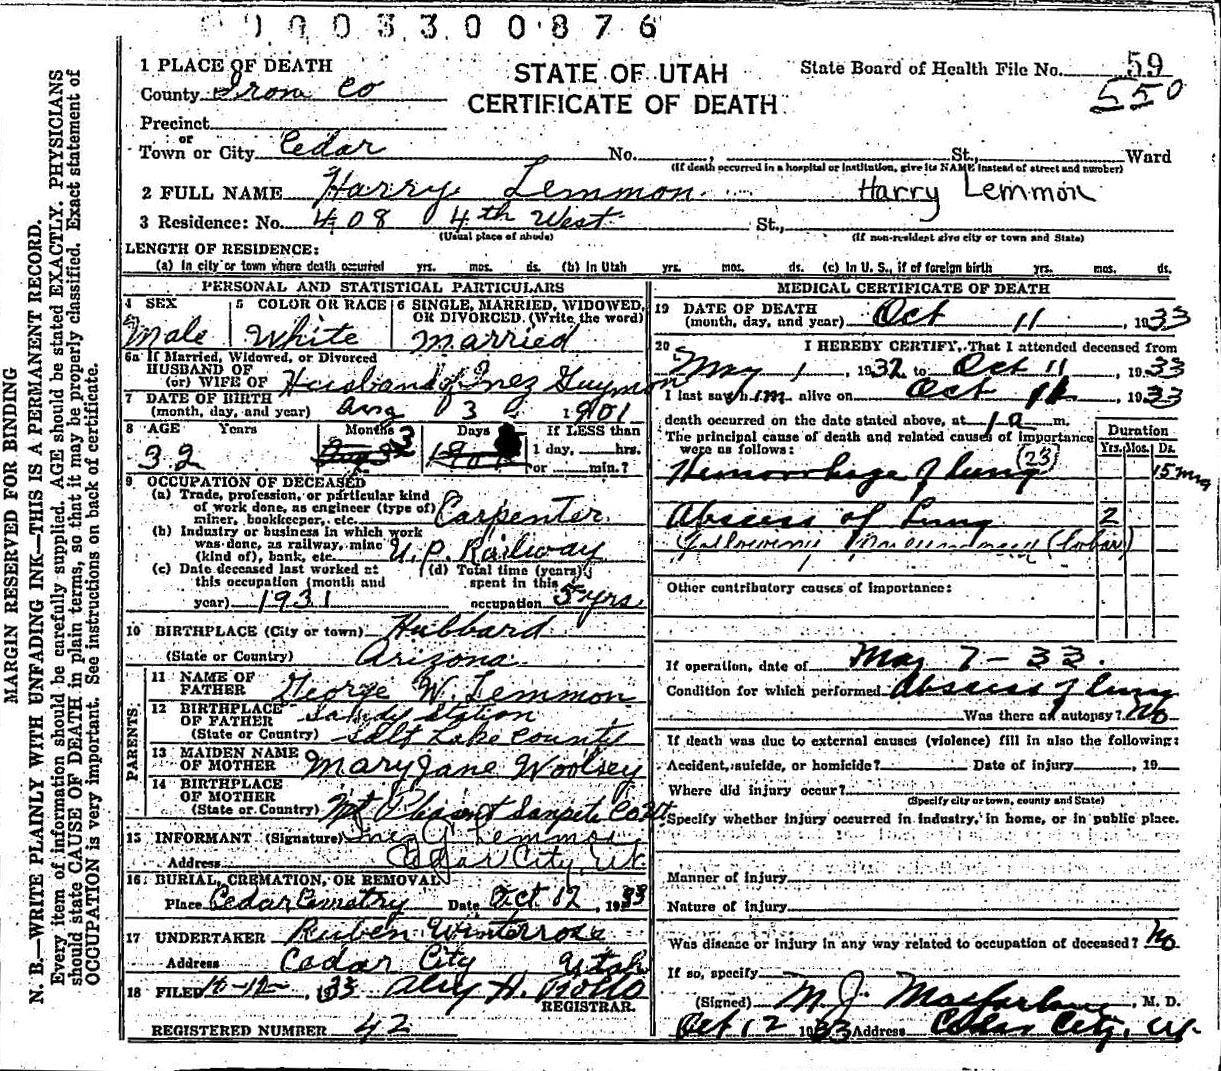 1003300876
STATE OF UTAH
CERTIFICATE OF DEATH
State Board of Health File No. 59
550
1 PLACE OF DEATH
County Iron Co
Precinct
or
Town or City Cedar No. , St., Ward
(If death occurred in a hospital or institution, give its NAME instead of street and number)
2 FULL NAME Harry Lemmon Harry Lemmon
3 Residence: No. 408 4th West St.,
(Usual place of abode) (If non-resident give city or town and State)
LENGTH OF RESIDENCE:
(a) In city or town where death occurred yrs. mos. ds. (b) In Utah yrs. mos. ds. (c) In U. S., if of foreign birth yrs. mos. ds.
PERSONAL AND STATISTICAL PARTICULARS
4 SEX Male
5 COLOR OR RACE White
6 SINGLE, MARRIED, WIDOWED, OR DIVORCED. (Write the word) Married
6a If Married, Widowed, or Divorced
HUSBAND OF
(or) WIFE OF Husband of Inez Guymon
7 DATE OF BIRTH
(month, day, and year) Aug 3 1901
8 AGE Years Months Days If LESS than
32 3 1 day, hrs.
or min.?
9 OCCUPATION OF DECEASED
(a) Trade, profession, or particular kind
of work done, as engineer (type of)
miner, bookkeeper, etc. Carpenter
(b) Industry or business in which work
was done, as railway, mine
(kind of), bank, etc. U. P. Railway
(c) Date deceased last worked at
this occupation (month and
year) 1931
(d) Total time (years)
spent in this
occupation 5 yrs
10 BIRTHPLACE (City or town) Hubbard
(State or Country) Arizona
PARENTS
11 NAME OF
FATHER George W. Lemmon
12 BIRTHPLACE
OF FATHER Sandy Station
(State or Country) Salt Lake County
13 MAIDEN NAME
OF MOTHER Mary Jane Woolsey
14 BIRTHPLACE
OF MOTHER
(State or Country) Mt Pleasant Sanpete Co Ut.
15 INFORMANT (Signature) Inez G Lemmon
Address Cedar City, Ut.
16 BURIAL, CREMATION, OR REMOVAL
Place Cedar Cemetry Date Oct 12, 1933
17 UNDERTAKER Ruben Winterrose
Address Cedar City Utah
18 FILED 10-12-, 1933 H.
REGISTRAR.
REGISTERED NUMBER 42
MEDICAL CERTIFICATE OF DEATH
19 DATE OF DEATH
(month, day, and year) Oct 11, 1933
20 I HEREBY CERTIFY, That I attended deceased from
May 1, 1932 to Oct 11, 1933
I last saw him alive on Oct 11, 1933
death occurred on the date stated above, at 1 a m.
The principal cause of death and related causes of importance
were as follows:
Duration
Yrs. Mos. Ds.
Hemorrhage of lung (23) 15 min
Abscess of Lung 2
Following Pneumonia (lobar)
Other contributory causes of importance:
If operation, date of May 7-33.
Condition for which performed Abscess of lung
Was there an autopsy? No
If death was due to external causes (violence) fill in also the following:
Accident, suicide, or homicide? Date of injury , 19
Where did injury occur?
(Specify city or town, county and State)
Specify whether injury occurred in industry, in home, or in public place.
Manner of injury
Nature of injury
Was disease or injury in any way related to occupation of deceased? No
If so, specify
(Signed) M. J. Macfarlane, M. D.
Oct 12 1933 Address Cedar City, Ut.
MARGIN RESERVED FOR BINDING
N. B.—WRITE PLAINLY WITH UNFADING INK—THIS IS A PERMANENT RECORD.
Every item of information should be carefully supplied. AGE should be stated EXACTLY. PHYSICIANS
should state CAUSE OF DEATH in plain terms, so that it may be properly classified. Exact statement of
OCCUPATION is very important. See instructions on back of certificate.